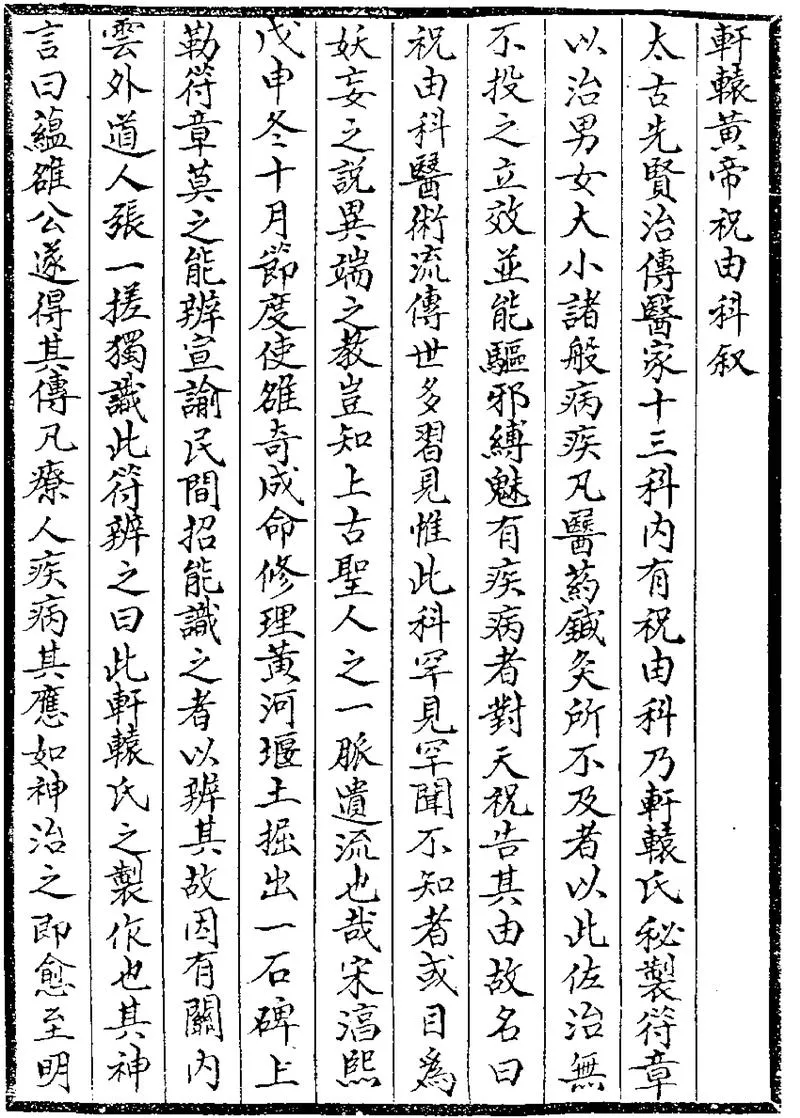 軒轅黃帝祝由科叙
太古先賢治傳醫家十三科內有祝由科乃軒轅氏秘製符章
以治男女大小諸般病疾凡醫葯鍼灸所不及者以此佐治無
不投之立效並能驅邪縛魅有疾病者對天祝告其由故名曰
祝由科醫術流傳世多習見惟此科罕見罕聞不知者或目爲
妖妄之說異端之教豈知上古聖人之一脈遺流也哉宋淳熙
戊申冬十月節度使雒奇成命修理黃河堰土掘出一石碑上
勒符章莫之能辨宣諭民間招能識之者以辨其故因有關內
雲外道人張一搓獨識此符辨之曰此軒轅氏之製作也其神
言曰蘊雒公遂得其傳凡療人疾病其應如神治之即愈至明